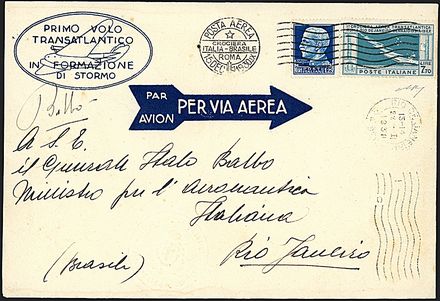 PRIMO VOLO
TRANSATLANTICO
IN FORMAZIONE
DI STORMO
POSTA AEREA
CROCIERA
ITALIA-BRASILE
ROMA
POSTE ITALIANE
Balbo
PAR
AVION
PER VIA AEREA
A S. E.
il Generale Italo Balbo
Ministro per l'aeronautica
Italiana
Rio Janeiro
(Brasile)